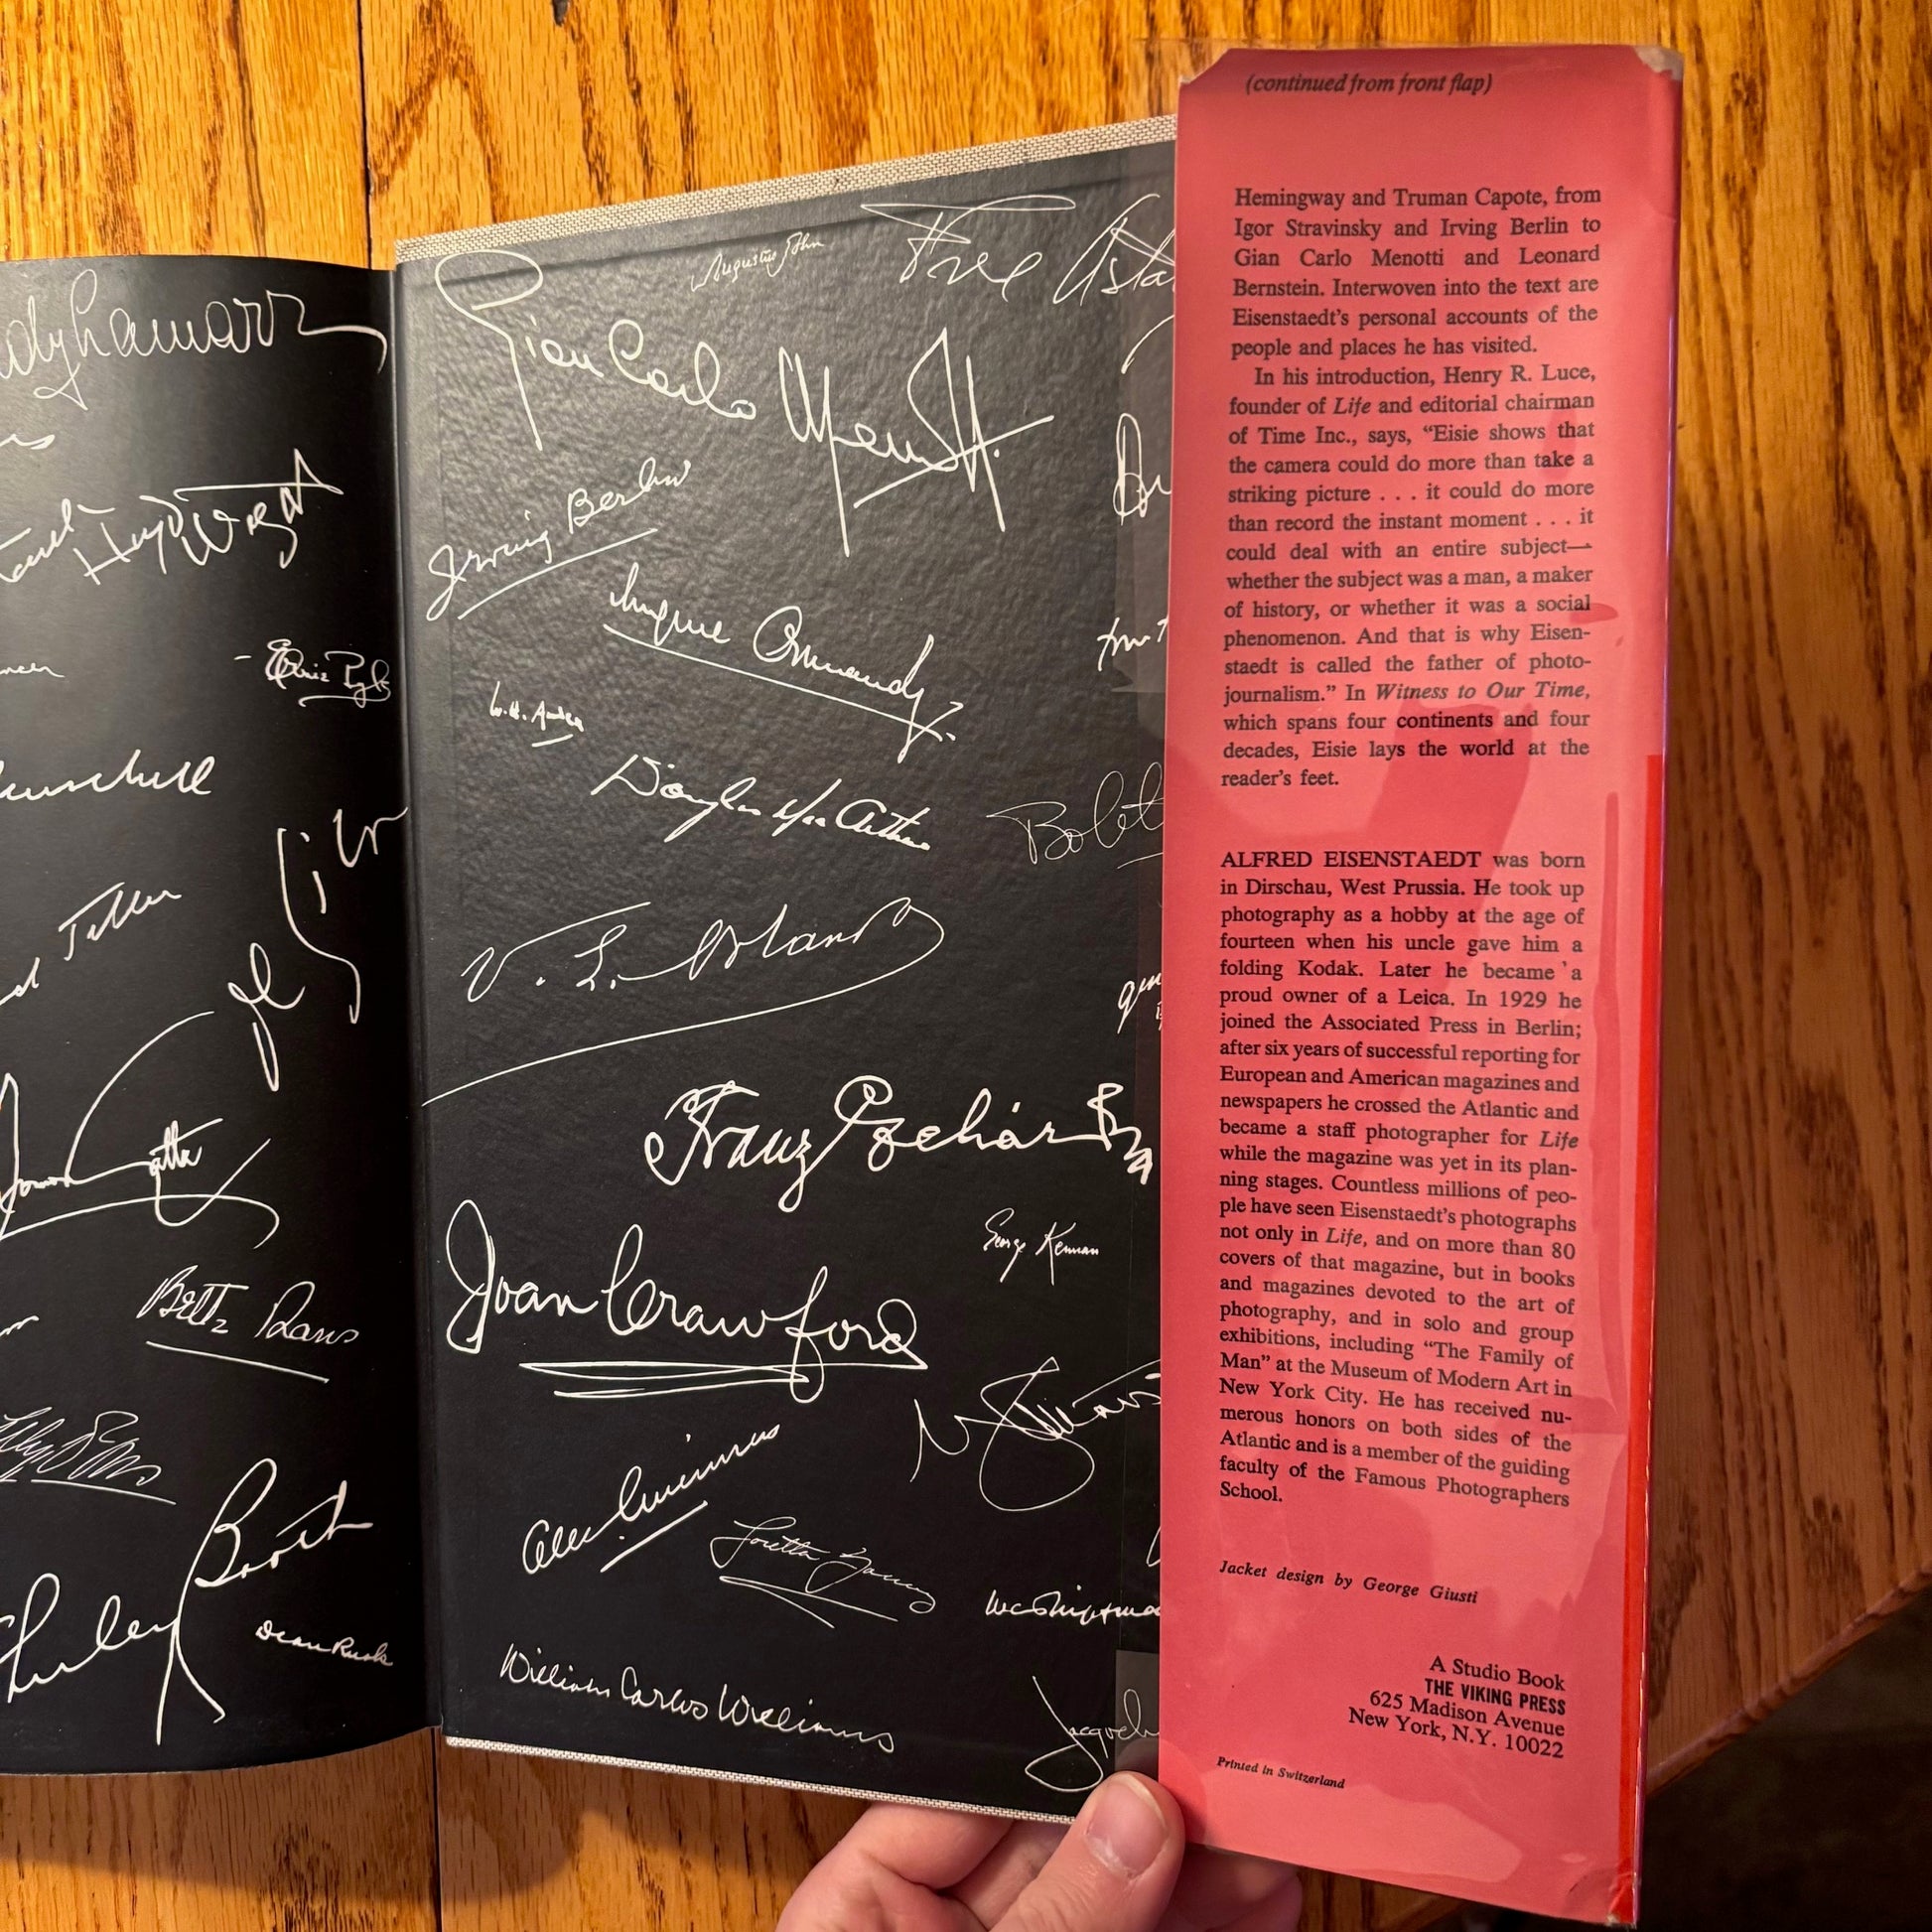 Augustus John
Fred Asta
Gian Carlo Menotti
Irving Berlin
Eugene Ormandy
W. H. Auden
Douglas MacArthur
Bolet
V. E. Orlando
Franz Boehar
Joan Crawford
George Kennan
Alec Guinness
Loretta Young
William Carlos Williams
Jacquel
dy Lamarr
Ernie Pyle
Teller
Bette Davis
Shirley Booth
Dean Rusk
(continued from front flap)
Hemingway and Truman Capote, from
Igor Stravinsky and Irving Berlin to
Gian Carlo Menotti and Leonard
Bernstein. Interwoven into the text are
Eisenstaedt's personal accounts of the
people and places he has visited.
In his introduction, Henry R. Luce,
founder of Life and editorial chairman
of Time Inc., says, “Eisie shows that
the camera could do more than take a
striking picture . . . it could do more
than record the instant moment . . . it
could deal with an entire subject—
whether the subject was a man, a maker
of history, or whether it was a social
phenomenon. And that is why Eisen-
staedt is called the father of photo-
journalism.” In Witness to Our Time,
which spans four continents and four
decades, Eisie lays the world at the
reader's feet.
ALFRED EISENSTAEDT was born
in Dirschau, West Prussia. He took up
photography as a hobby at the age of
fourteen when his uncle gave him a
folding Kodak. Later he became a
proud owner of a Leica. In 1929 he
joined the Associated Press in Berlin;
after six years of successful reporting for
European and American magazines and
newspapers he crossed the Atlantic and
became a staff photographer for Life
while the magazine was yet in its plan-
ning stages. Countless millions of peo-
ple have seen Eisenstaedt's photographs
not only in Life, and on more than 80
covers of that magazine, but in books
and magazines devoted to the art of
photography, and in solo and group
exhibitions, including “The Family of
Man” at the Museum of Modern Art in
New York City. He has received nu-
merous honors on both sides of the
Atlantic and is a member of the guiding
faculty of the Famous Photographers
School.
Jacket design by George Giusti
A Studio Book
THE VIKING PRESS
625 Madison Avenue
New York, N.Y. 10022
Printed in Switzerland